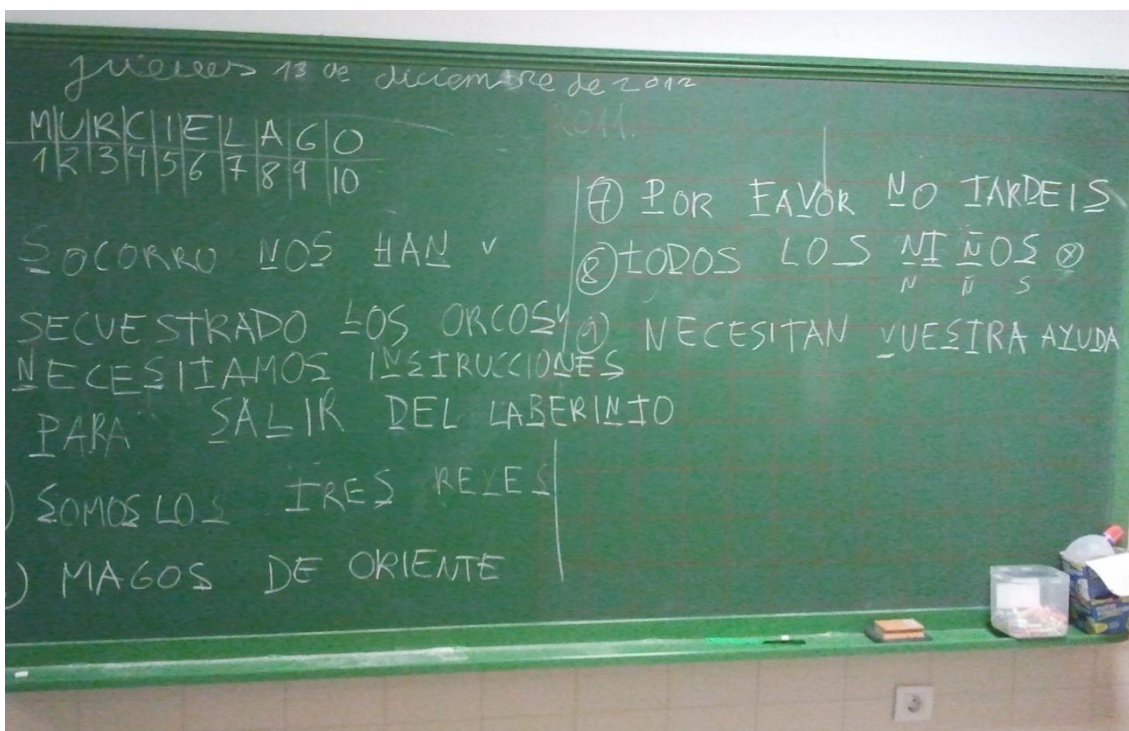 jueves 13 de diciembre de 2012
M U R C I E L A G O
1 2 3 4 5 6 7 8 9 10
SOCORRO NOS HAN
SECUESTRADO LOS ORCOS
NECESITAMOS INSTRUCCIONES
PARA SALIR DEL LABERINTO
) SOMOS LOS TRES REYES
) MAGOS DE ORIENTE
7 POR FAVOR NO TARDEIS
8 TODOS LOS NIÑOS
N Ñ S
9) NECESITAN VUESTRA AYUDA